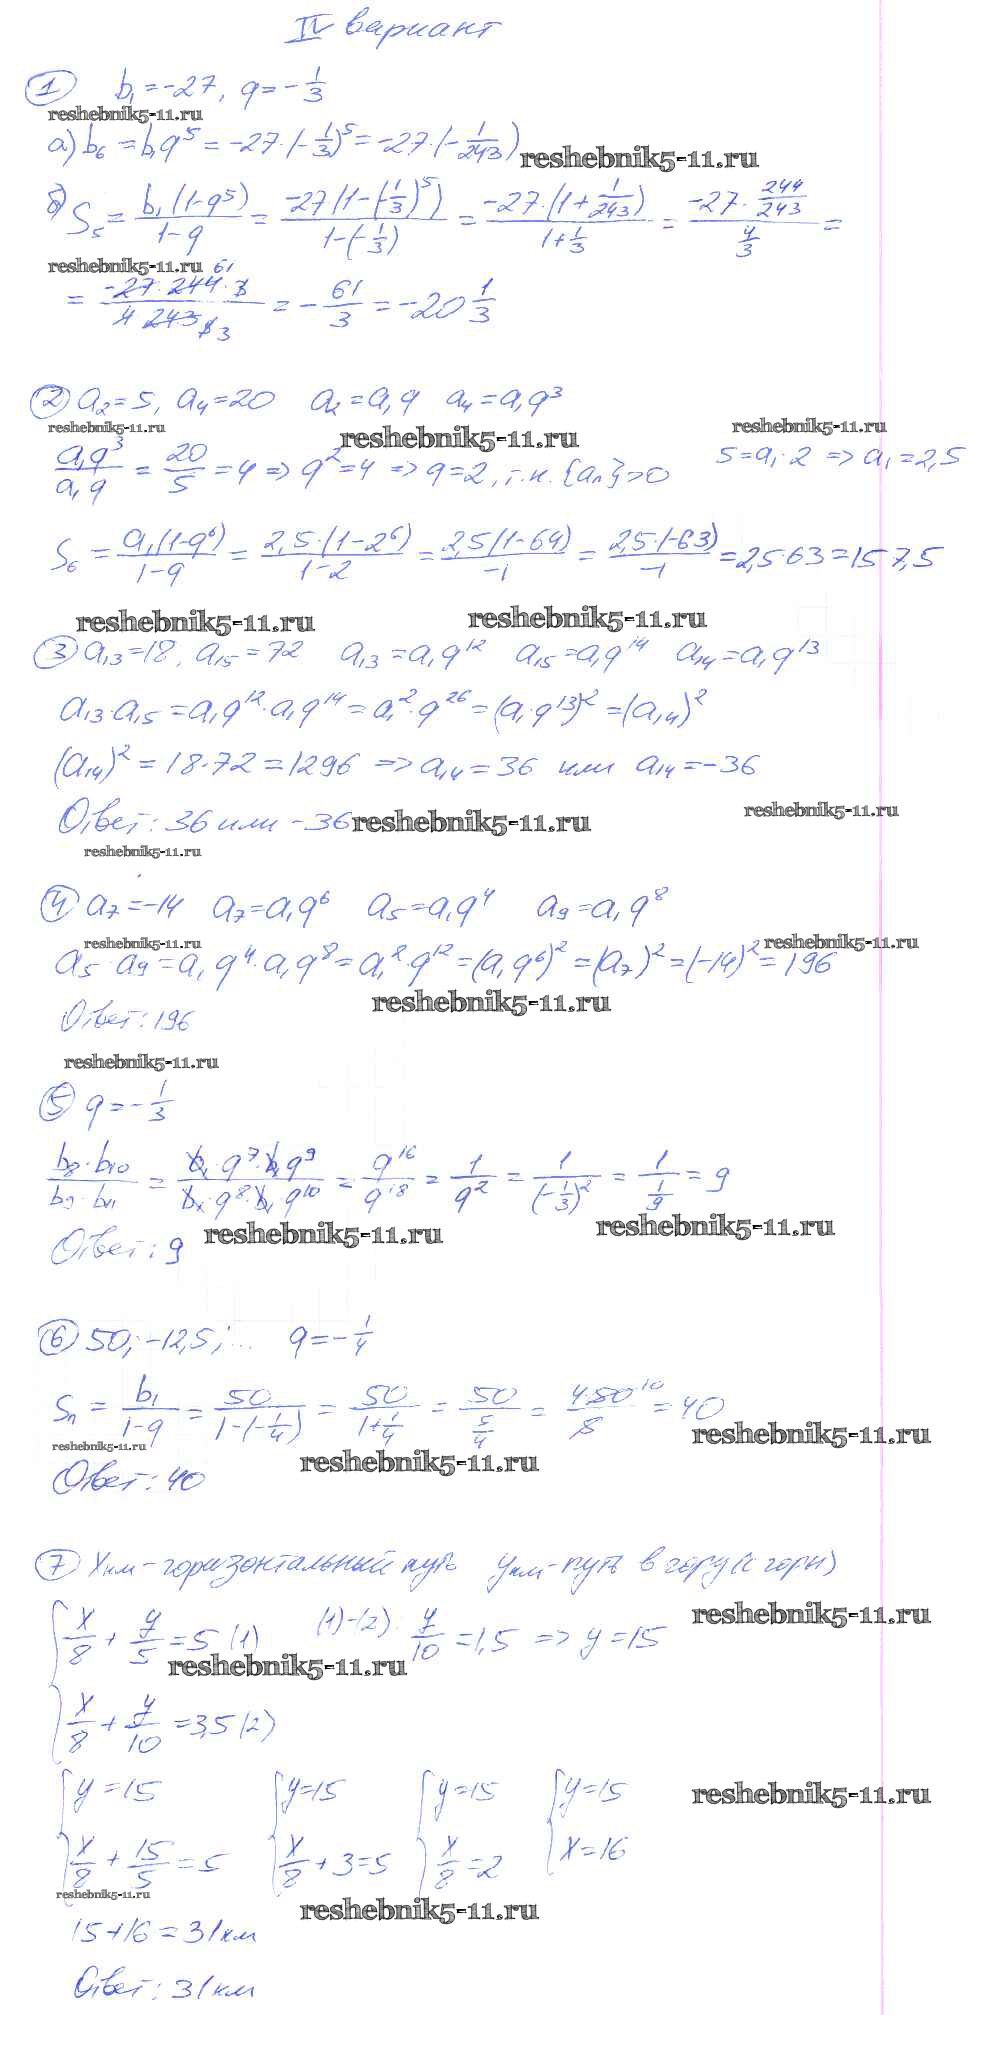 IV вариант
① b₁ = -27, q = -1/3
reshebnik5-11.ru
а) b₆ = b₁q⁵ = -27·(-1/3)⁵ = -27·(-1/243)
reshebnik5-11.ru
б) S₅ = b₁(1-q⁵)/(1-q) = -27(1-(-1/3)⁵)/(1-(-1/3)) = -27·(1+1/243)/(1+1/3) = (-27·244/243)/(4/3) =
reshebnik5-11.ru
= -27·244 61·3/(4·243·3) = -61/3 = -20 1/3
② a₂ = 5, a₄ = 20 a₂ = a₁q a₄ = a₁q³
reshebnik5-11.ru reshebnik5-11.ru reshebnik5-11.ru
a₁q³/a₁q = 20/5 = 4 => q² = 4 => q = 2, т.к. {aₙ}>0 5 = a₁·2 => a₁ = 2,5
S₆ = a₁(1-q⁶)/(1-q) = 2,5·(1-2⁶)/(1-2) = 2,5(1-64)/-1 = 2,5·(-63)/-1 = 2,5·63 = 157,5
reshebnik5-11.ru reshebnik5-11.ru
③ a₁₃ = 18, a₁₅ = 72 a₁₃ = a₁q¹² a₁₅ = a₁q¹⁴ a₁₄ = a₁q¹³
a₁₃·a₁₅ = a₁q¹²·a₁q¹⁴ = a₁²·q²⁶ = (a₁·q¹³)² = (a₁₄)²
(a₁₄)² = 18·72 = 1296 => a₁₄ = 36 или a₁₄ = -36
Ответ: 36 или -36 reshebnik5-11.ru reshebnik5-11.ru
reshebnik5-11.ru
④ a₇ = -14 a₇ = a₁q⁶ a₅ = a₁q⁴ a₉ = a₁q⁸
reshebnik5-11.ru reshebnik5-11.ru
a₅·a₉ = a₁q⁴·a₁q⁸ = a₁²·q¹² = (a₁q⁶)² = (a₇)² = (-14)² = 196
reshebnik5-11.ru
Ответ: 196
reshebnik5-11.ru
⑤ q = -1/3
b₈·b₁₀/b₉·b₁₁ = b₁·q⁷·b₁q⁹/b₁·q⁸·b₁q¹⁰ = q¹⁶/q¹⁸ = 1/q² = 1/(-1/3)² = 1/(1/9) = 9
reshebnik5-11.ru reshebnik5-11.ru
Ответ: 9
⑥ 50; -12,5; ... q = -1/4
Sₙ = b₁/(1-q) = 50/(1-(-1/4)) = 50/(1+1/4) = 50/(5/4) = 4·50 10/5 = 40
reshebnik5-11.ru reshebnik5-11.ru reshebnik5-11.ru
Ответ: 40
⑦ X км - горизонтальный путь y км - путь в гору (с горы)
reshebnik5-11.ru
x/8 + y/5 = 5 (1) (1)-(2): y/10 = 1,5 => y = 15
reshebnik5-11.ru
x/8 + y/10 = 3,5 (2)
{y = 15 {y = 15 {y = 15 {y = 15
reshebnik5-11.ru
x/8 + 15/5 = 5 x/8 + 3 = 5 x/8 = 2 x = 16
reshebnik5-11.ru reshebnik5-11.ru
15+16 = 31 км
Ответ: 31 км